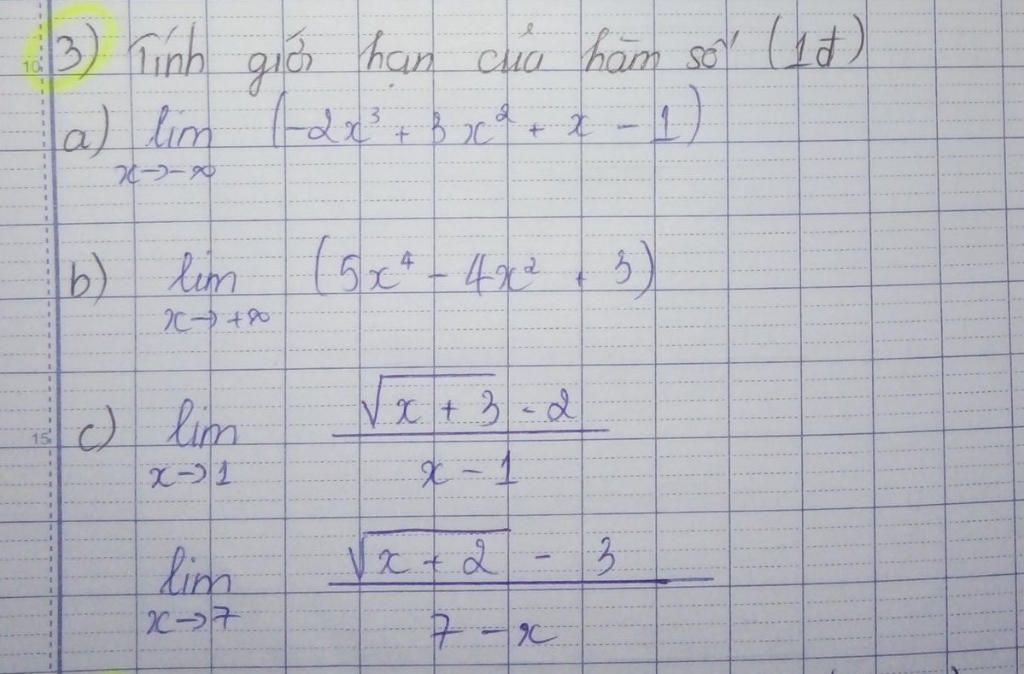 10 3) Tính giới hạn của hàm số (1đ)
a) lim (-2x³ + 3x² + x - 1)
x→-∞
b) lim (5x⁴ - 4x² + 3)
x→ +∞
√x + 3 - 2
15 c) lim
x→1 x - 1
√x + 2 - 3
lim
x→7 7 - x